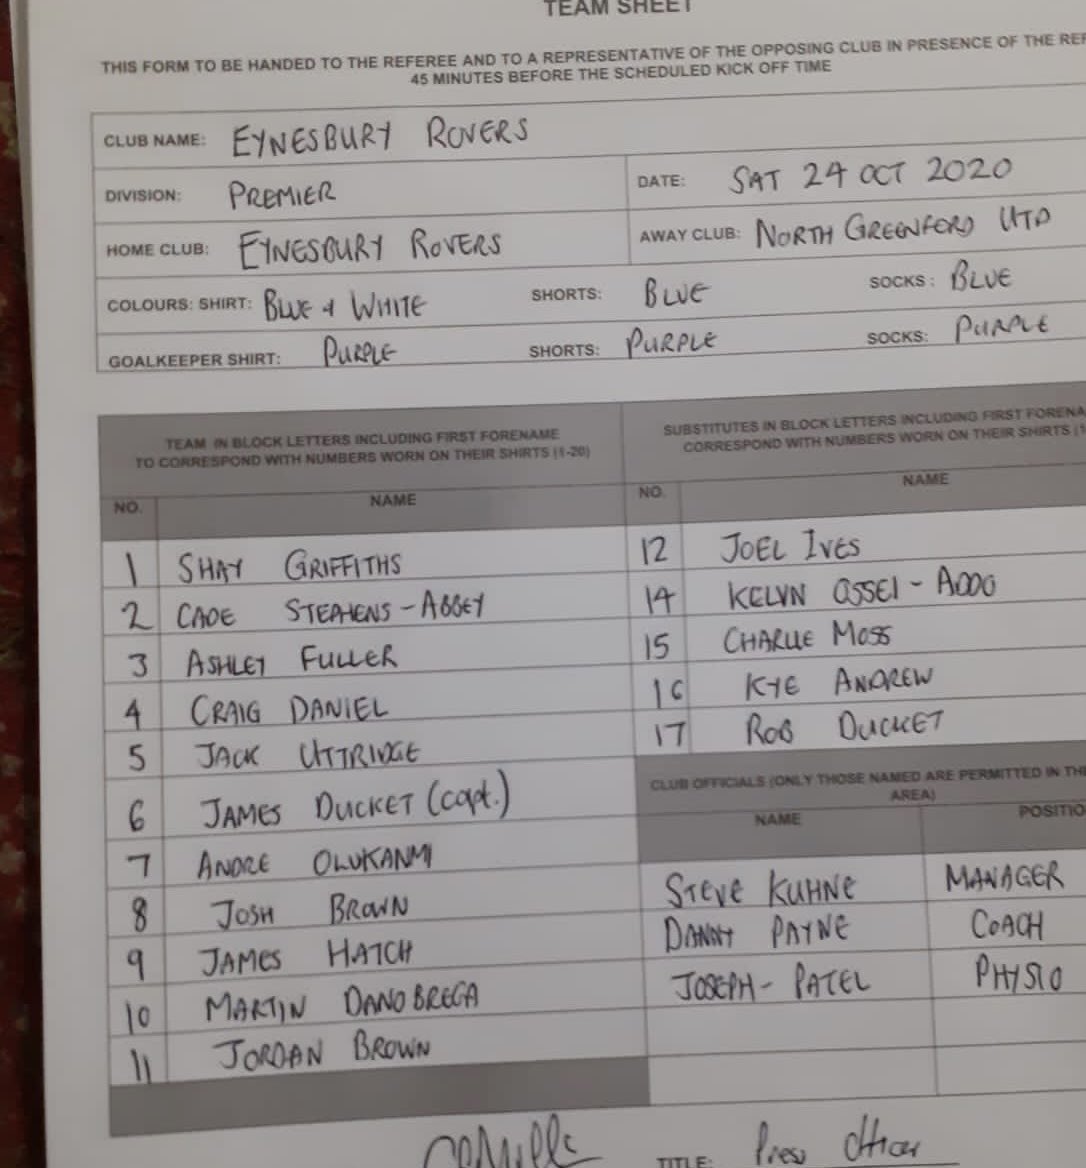 TEAM SHEET
THIS FORM TO BE HANDED TO THE REFEREE AND TO A REPRESENTATIVE OF THE OPPOSING CLUB IN PRESENCE OF THE REF
45 MINUTES BEFORE THE SCHEDULED KICK OFF TIME
CLUB NAME: EYNESBURY ROVERS
DIVISION: PREMIER DATE: SAT 24 OCT 2020
HOME CLUB: EYNESBURY ROVERS AWAY CLUB: NORTH GREENFORD UTD
COLOURS: SHIRT: BLUE + WHITE SHORTS: BLUE SOCKS: BLUE
GOALKEEPER SHIRT: PURPLE SHORTS: PURPLE SOCKS: PURPLE
TEAM IN BLOCK LETTERS INCLUDING FIRST FORENAME
TO CORRESPOND WITH NUMBERS WORN ON THEIR SHIRTS (1-20)
NO. NAME
1 SHAY GRIFFITHS
2 CADE STEPHENS-ABBEY
3 ASHLEY FULLER
4 CRAIG DANIEL
5 JACK UTTRIDGE
6 JAMES DUCKET (capt.)
7 ANDRE OLUKANMI
8 JOSH BROWN
9 JAMES HATCH
10 MARTIN DANOBREGA
11 JORDAN BROWN
SUBSTITUTES IN BLOCK LETTERS INCLUDING FIRST FORENA
CORRESPOND WITH NUMBERS WORN ON THEIR SHIRTS (1
NO. NAME
12 JOEL IVES
14 KELVIN OSSEI-ADDO
15 CHARLIE MOSS
16 KYE ANDREW
17 ROB DUCKET
CLUB OFFICIALS (ONLY THOSE NAMED ARE PERMITTED IN THE
AREA)
NAME POSITIO
STEVE KUHNE MANAGER
DANNY PAYNE COACH
JOSEPH- PATEL PHYSIO
TITLE: Press Officer